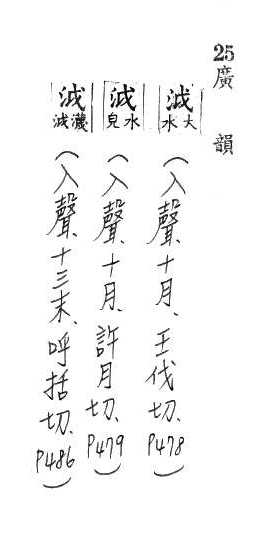 25廣韻
泧大水(入聲、十月、王伐切、P478)
泧水皃(入聲、十月、許月切、P479)
泧瀎泧(入聲、十三末、呼括切、P486)